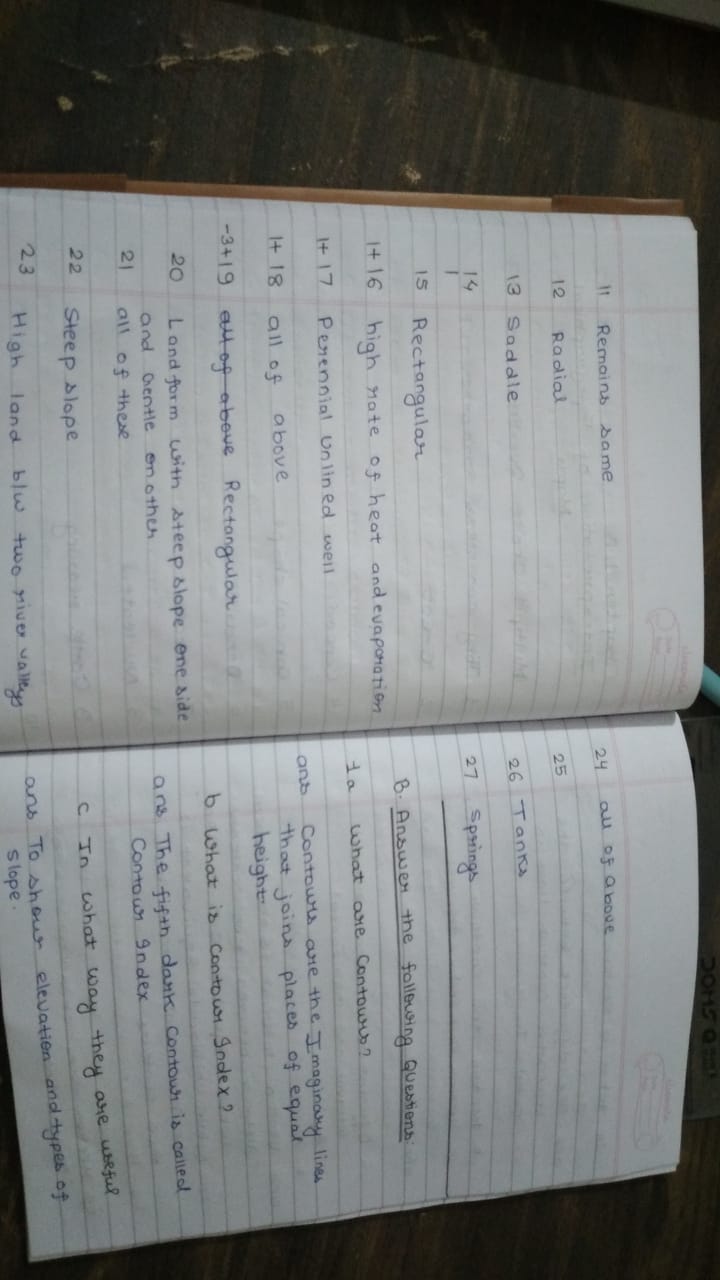 11 Remains same
12 Radial
13 Saddle
14
15 Rectangular
1+ 16 high rate of heat and evaporation
1+ 17 Perennial Unlined well
1+ 18 all of above
-3+19 all of above Rectangular
20 Landform with steep slope one side
and Gentle on other
21 all of these
22 Steep slope
23 High land b/w two river valleys
24 all of above
25
26 Tanks
27 Springs
B. Answer the following Questions:
1a What are Contours?
ans Contours are the Imaginary lines
that joins places of equal
height.
b What is Contour Index?
ans The fifth dark Contour is called
Contour Index
c In what way they are useful
ans To show elevation and types of
slope.